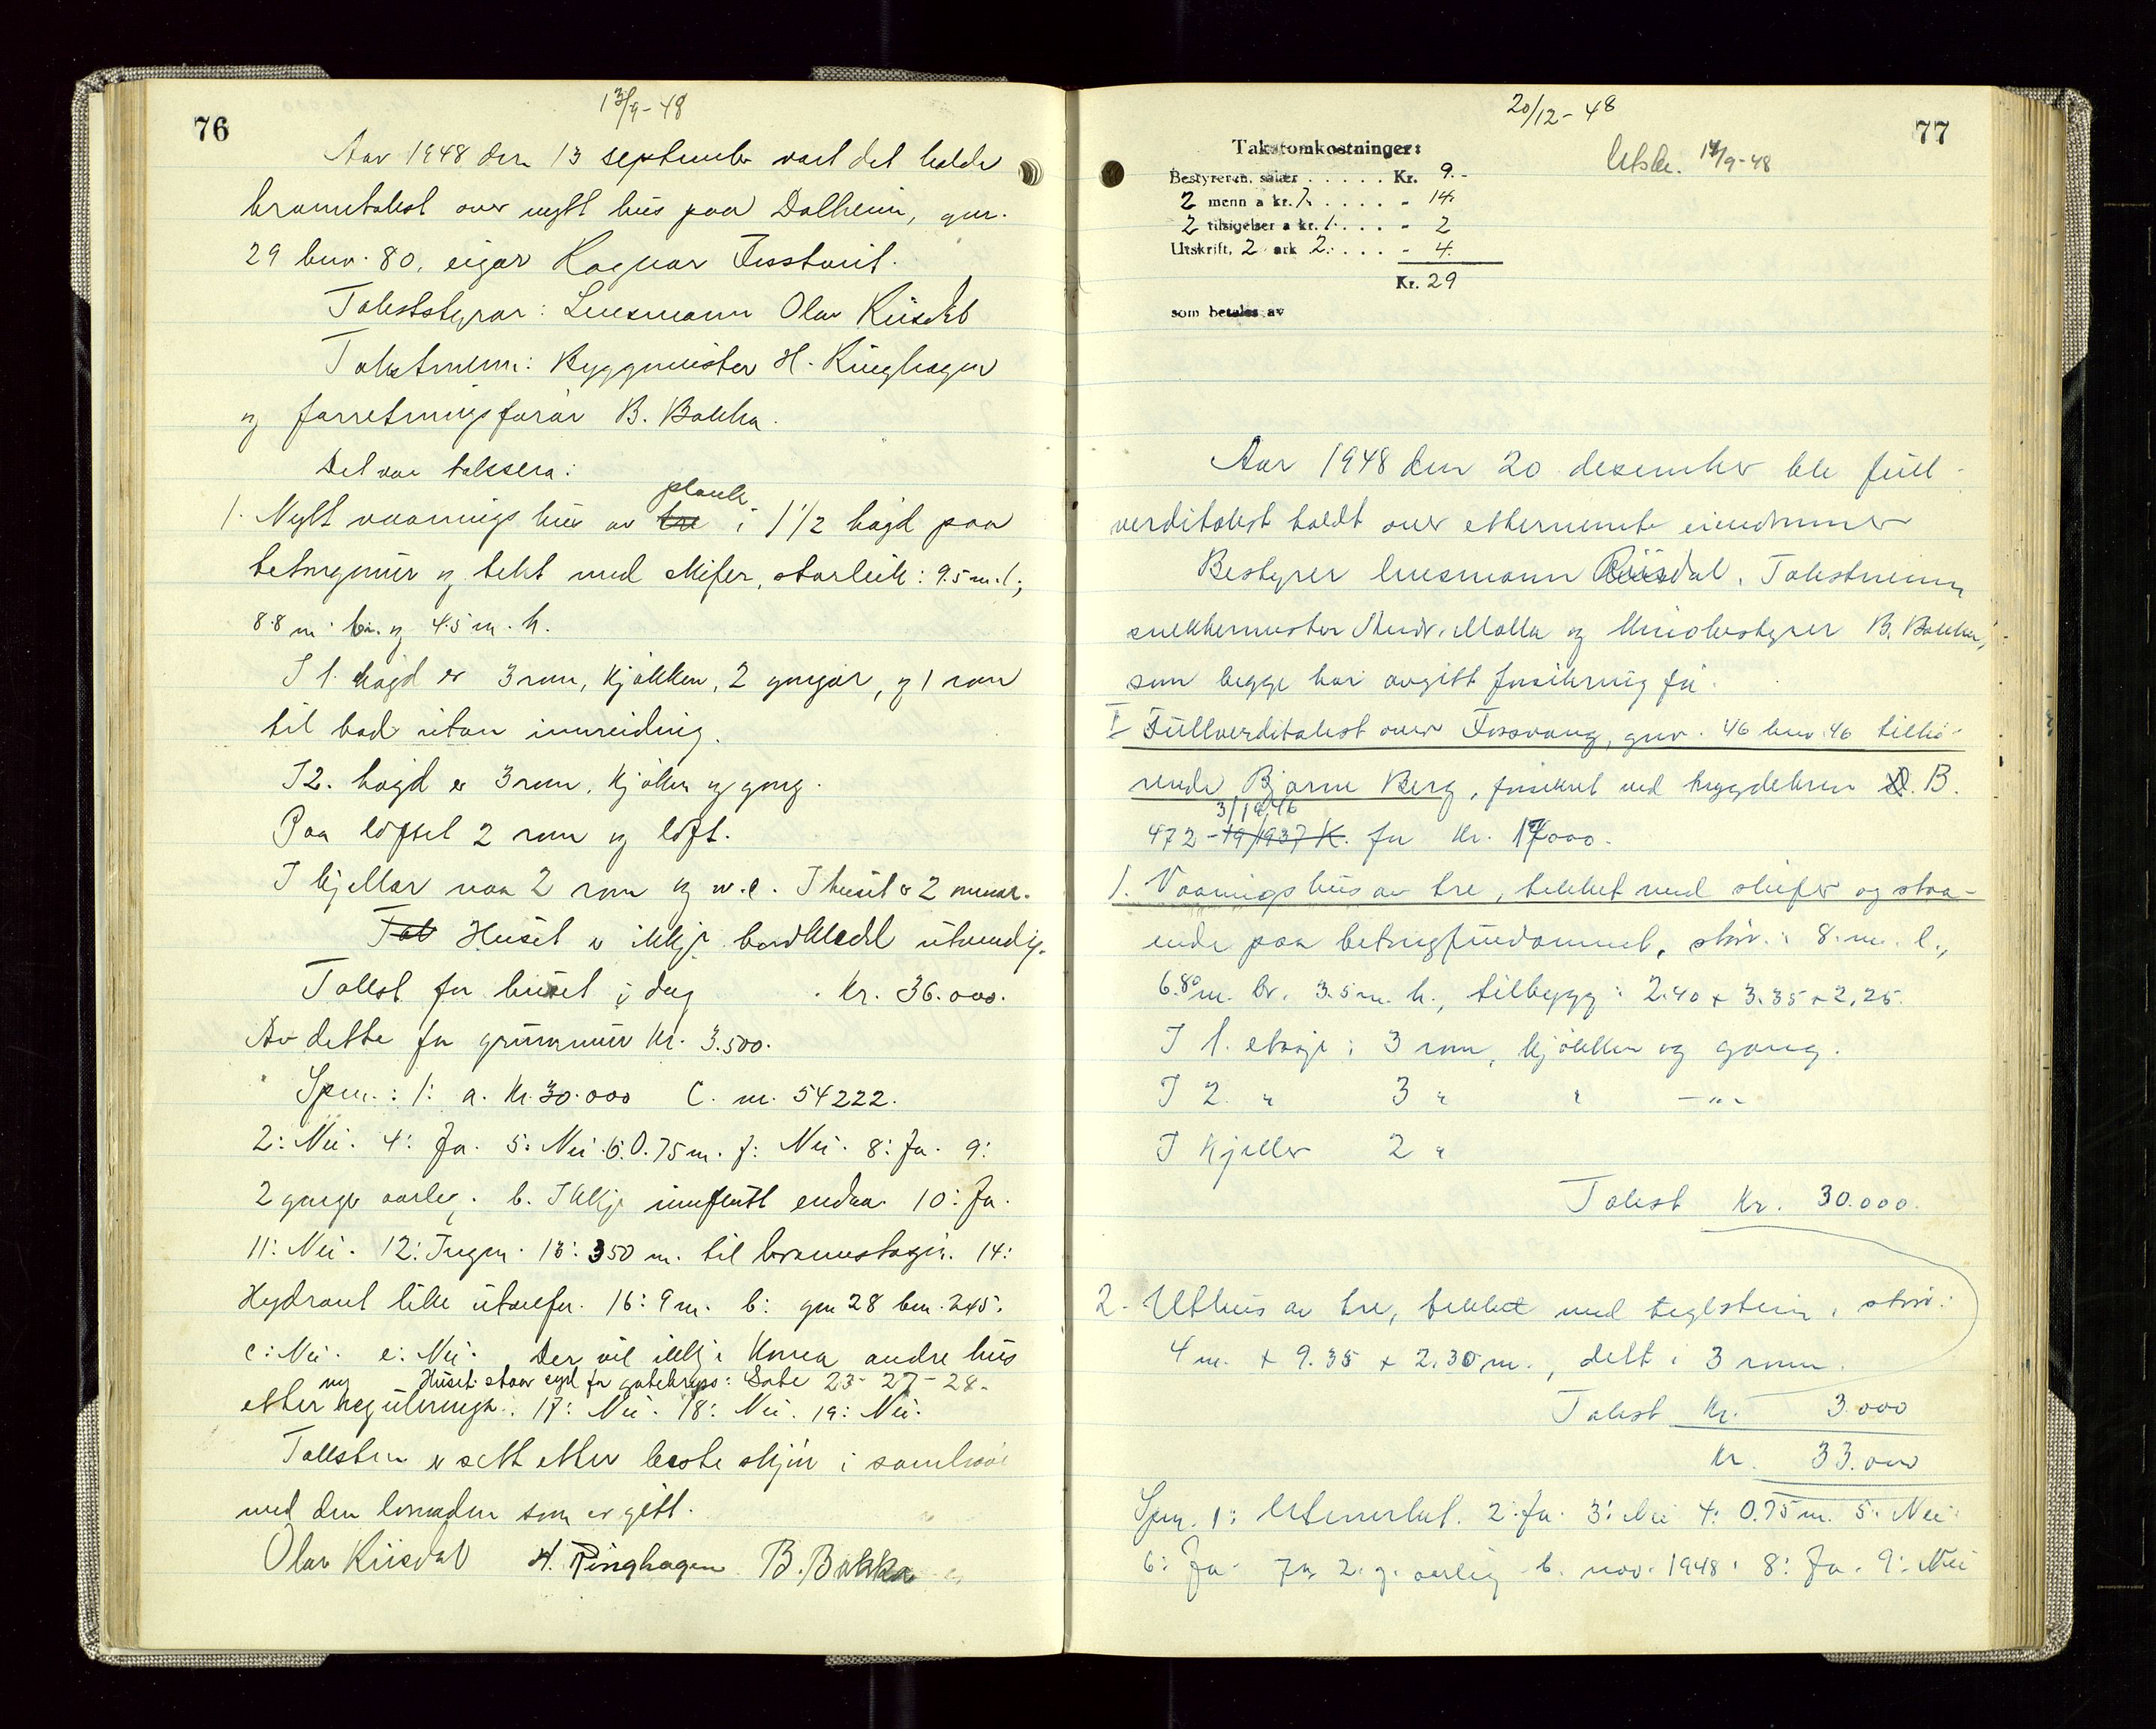 76
13/9-48
Aar 1948 den 13 september vart det halde
branntakst over nytt hus paa Dalheim, gnr.
29 bnr. 80, eigar Ragnar Tesstveit.
Takststyrar: Lensmann Olav Riisdal
Takstmenn: Byggmeister H. Ringhagen
og forretningsførar B. Bakka.
Det var taksera:
plank
1. Nytt vaaningshus av tre i 1 1/2 høgd paa
betongmur og tekt med skifer, storleik: 9.5 m. l;
8.8 m. br. og 4.5 m. h.
I 1. høgd er 3 rom, kjøkken, 2 gangar, og 1 rom
til bad utan innreiding.
I 2. høgd er 3 rom, kjøken og gang.
Paa loftet 2 rom og loft.
I kjellar er 2 rom og w.c. I huset er 2 murar.
Tak Huset er ikkje bordkledd utvendig.
Takst for huset i dag . kr. 36.000.
Av dette for grunnmur kr. 3.500.
Spm.: 1: a. kr. 30.000 C. nr. 54222.
2: Nei. 4: Ja. 5: Nei. 6: 0.75 m. 7: Nei. 8: Ja. 9:
2 gange aarleg. b. Ikkje innflutt endaa. 10: Ja.
11: Nei. 12: Ingen. 13: 350 m. til brannstasjon. 14:
Hydrant like utanfor. 16: 9 m. b: gnr 28 bnr. 245.
c: Nei. e: Nei. Der vil ikkje koma andre hus
ny Huset staar syd for gatekryss: Gate 23-27-28.
etter reguleringa. 17: Nei. 18: Nei. 19: Nei.
Taksten er sett etter beste skjøn i samhøve
med den lovnaden som er gitt.
Olav Riisdal H. Ringhagen B. Bakka
20/12-48
77
Utskr. 14/9-48
Takstomkostninger:
Bestyreren, salær . . . . . Kr. 9.-
2 menn a kr. 7. . . . . - 14.
2 tilsigelser a kr. 1. . . . - 2
Utskrift, 2 ark 2. . . . . - 4.
Kr. 29
som betales av
Aar 1948 den 20 desember ble full-
verditakst holdt over etternemnte eiendommer
Bestyrer lensmann Riisdal. Takstmenn
snekkermester Andr. Molla og kinobestyrer B. Bakka,
som begge har avgitt forsikring før.
I Fullverditakst over Fossvang, gnr. 46 bnr. 46 tilhø-
rende Bjarne Berg, forsikret ved bygdebrev D. B.
3/12 46
472 - 19/1937 K. for kr. 17000.
1. Vaaningshus av tre, tekket med skifer og staa-
ende paa betongfundament, størr.: 8. m. l.,
6.80 m. br. 3.5 m. h., tilbygg: 2.40 x 3.35 x 2.25.
I 1. etasje: 3 rom, kjøkken og gang.
I 2. " 3 " " -"-
I Kjeller 2 "
Takst kr. 30.000.
2. Uthus av tre, tekket med teglstein, størr:
4 m. x 9.35 x 2.30 m., delt i 3 rom.
Takst kr. 3.000
kr. 33.000
Spm. 1: Utmerket. 2: Ja. 3: Nei 4: 0.75 m. 5: Nei
6: Ja. 7a 2. g. aarlig b. nov. 1948. 8: Ja. 9: Nei